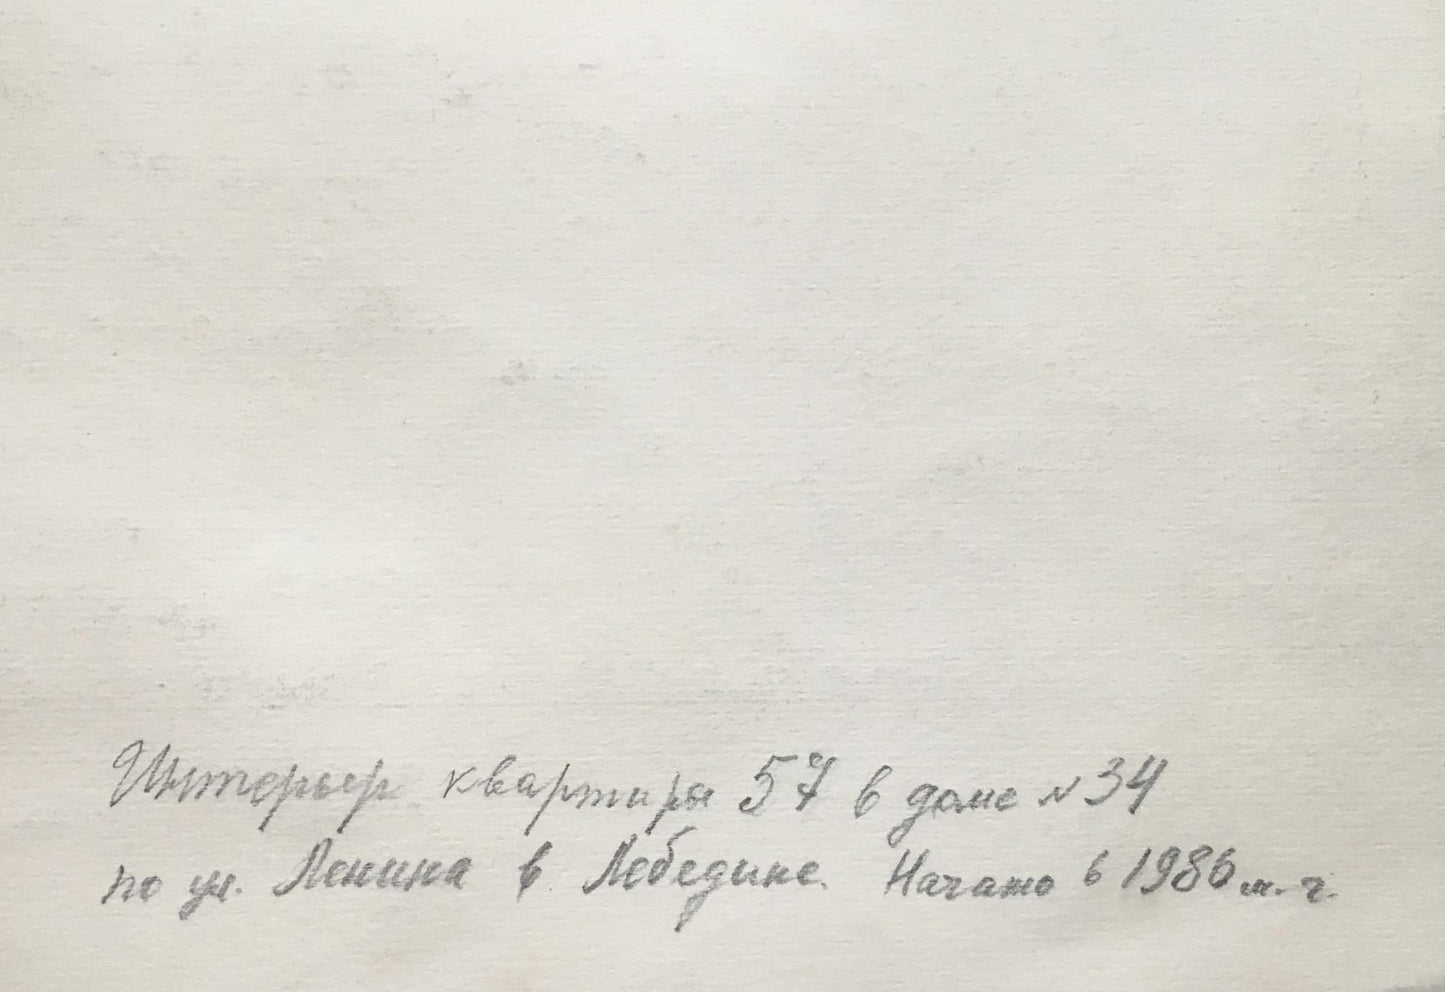 Интерьер квартиры 57 в доме № 34
по ул. Ленина в Лебедине. Начато в 1986 м. г.